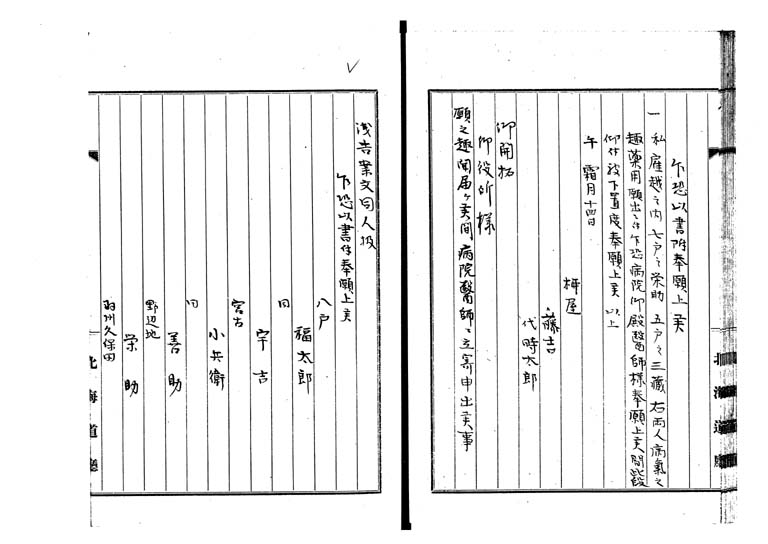 乍恐以書附奉願上候
一 私雇越之内七戸之栄助 五戸之三蔵右両人病氣之
趣薬用願出候ニ付乍恐病院御殿醫師様奉願上候間此段
仰付被下置度奉願上候 以上
午 霜月十四日
柄屋
藤吉
代時太郎
御開拓
御役所様
願之趣聞届ケ候間病院醫師ニ立寄申出候事
北海道廳
浅吉業文句人扱
乍恐以書付奉願上候
八戸
福太郎
同
宇吉
宮古
小兵衛
同
善助
野辺地
栄助
羽州久保田
北海道廳